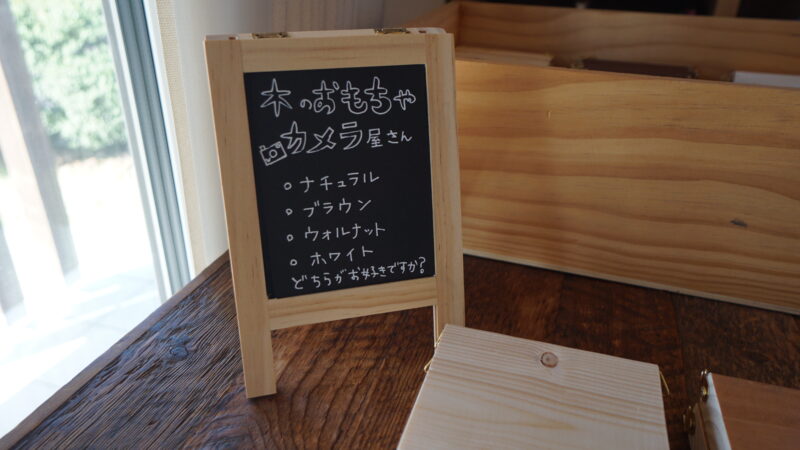 木のおもちゃ
カメラ屋さん
○ ナチュラル
○ ブラウン
○ ウォルナット
○ ホワイト
どちらがお好きですか?